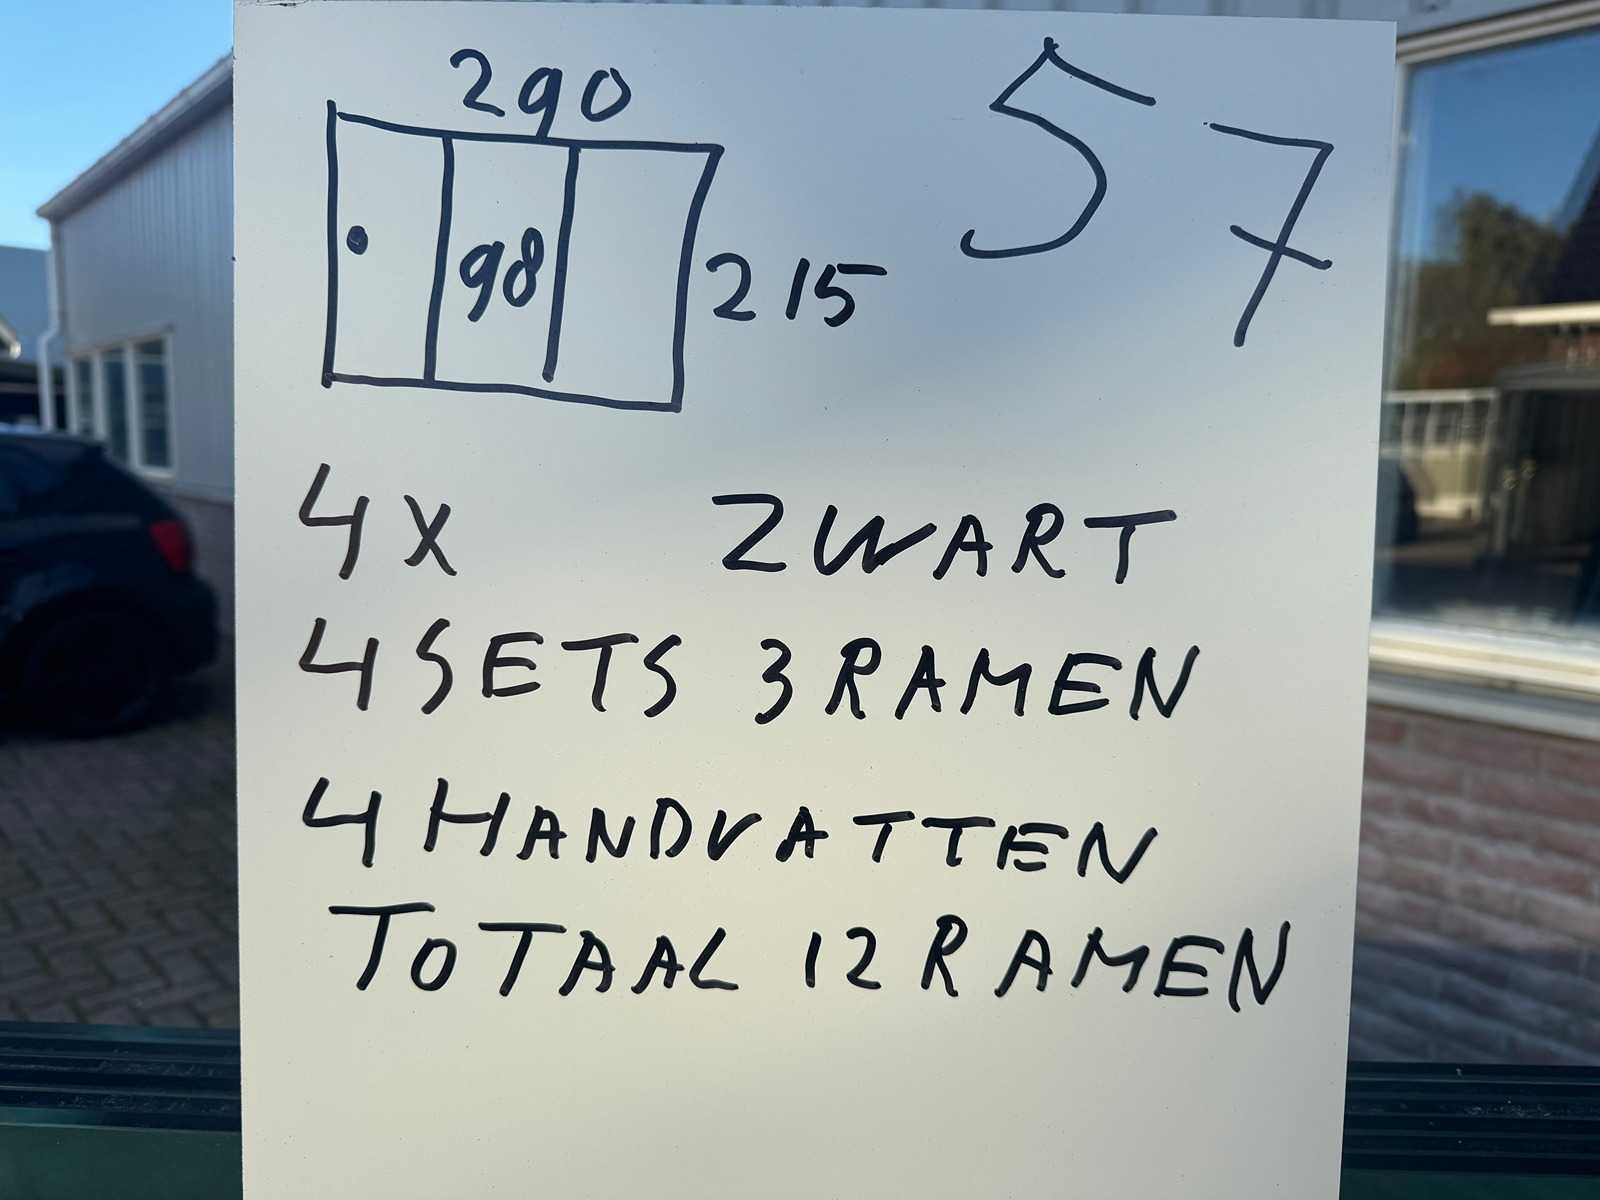 290
57
98
215
4X ZWART
4 SETS 3 RAMEN
4 HANDVATTEN
TOTAAL 12 RAMEN